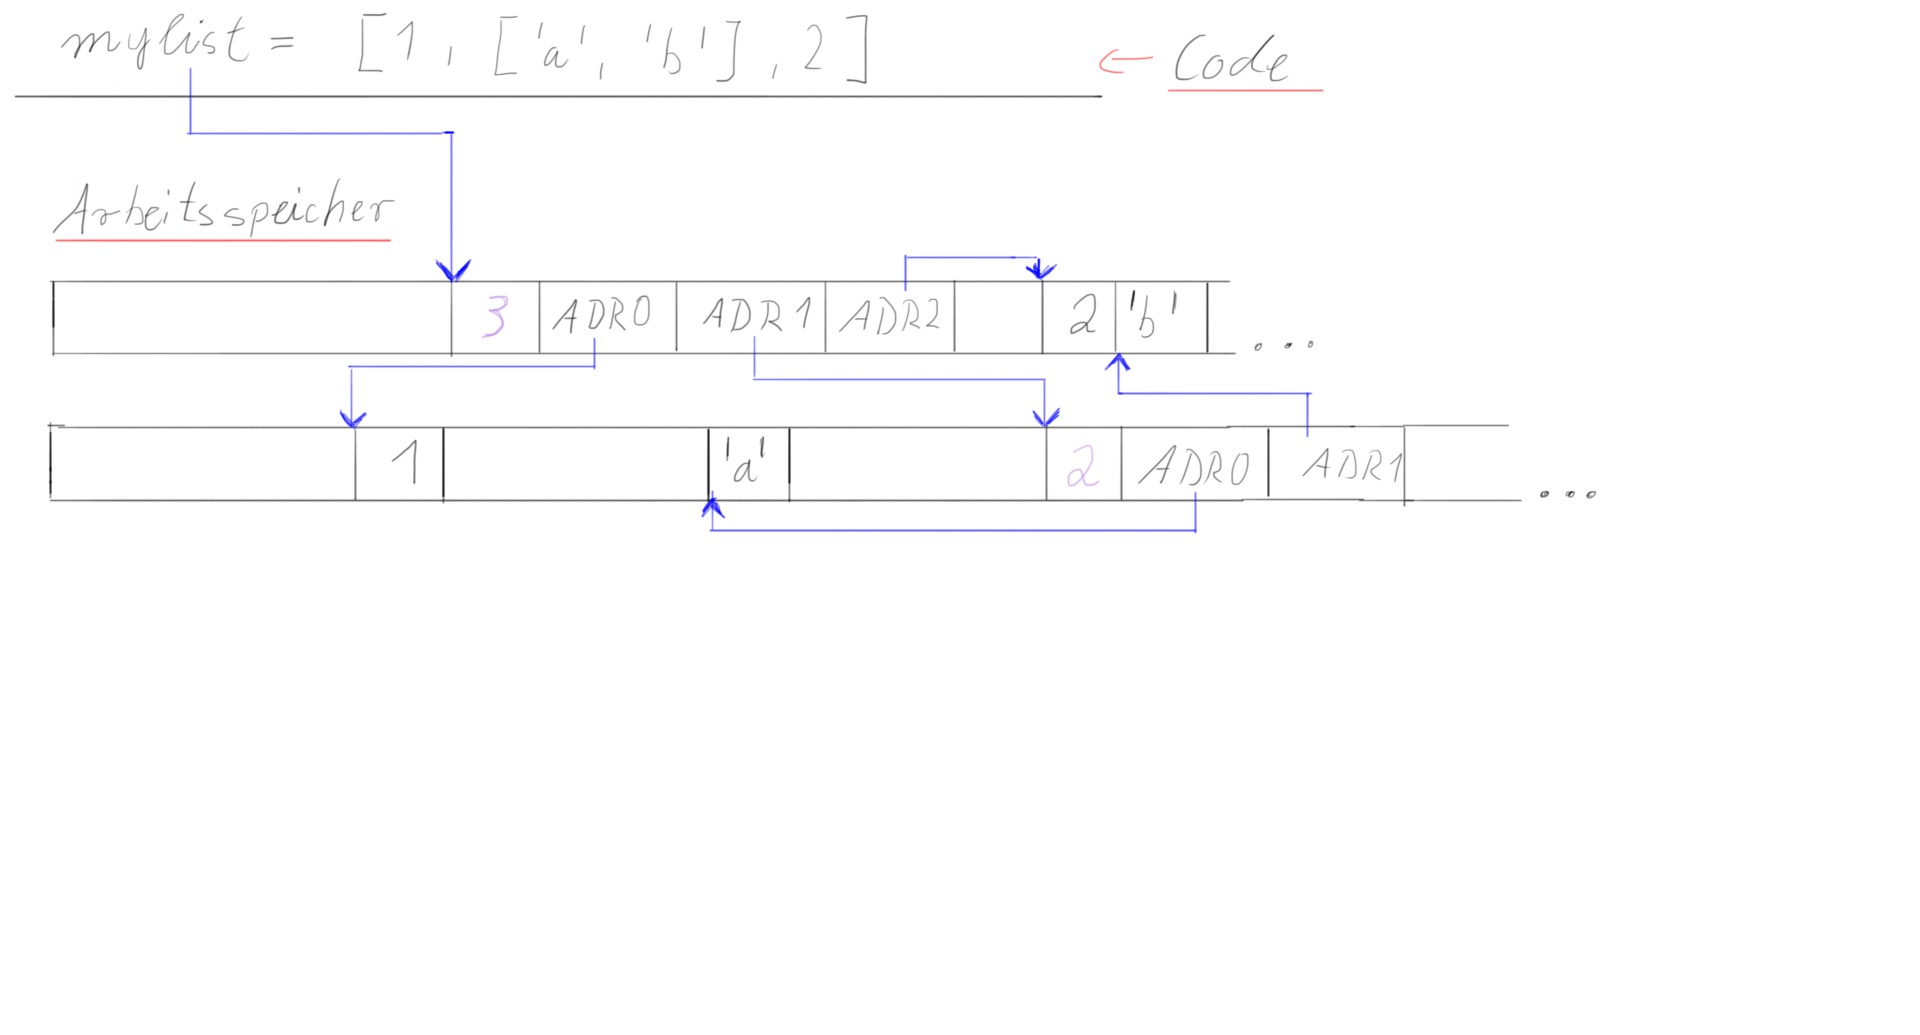 mylist = [1, ['a', 'b'], 2] ← Code
Arbeitsspeicher
3 ADR0 ADR1 ADR2 2 'b' ...
1 'a' 2 ADR0 ADR1 ...